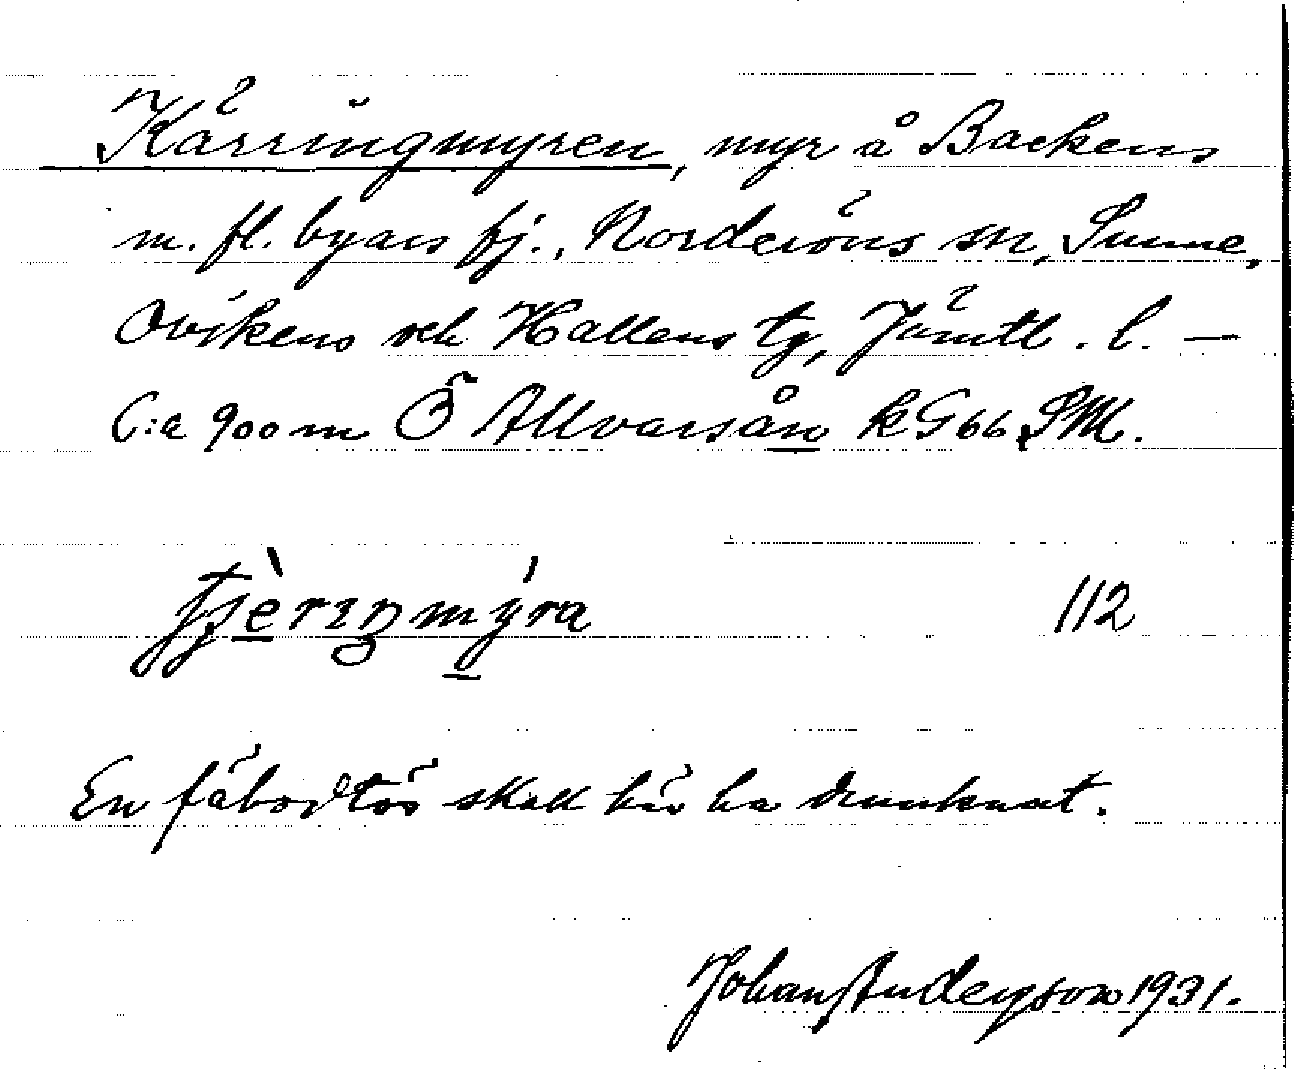 Kärringmyren, myr å Backens
m. fl. byars fj., Norderöns sn, Sunne,
Ovikens och Hallens tg, Jämtl. l. —
C:a 900 m Ö Allvarsån kG66 SM.
112
En fäbodtös skall här ha drunknat.
Johan Anderson 1931.